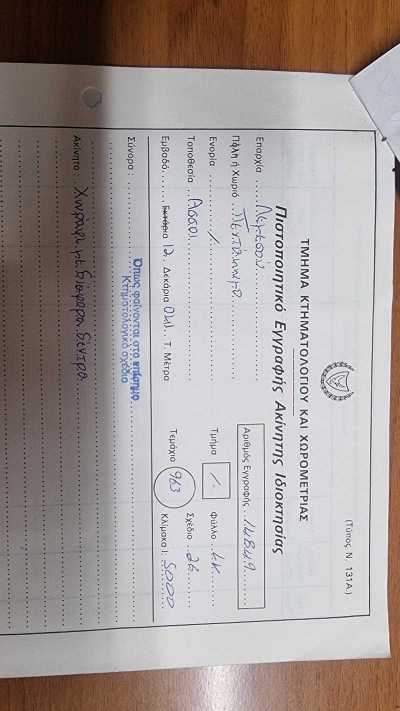 (Τύπος Ν. 131Α.)
ΤΜΗΜΑ ΚΤΗΜΑΤΟΛΟΓΙΟΥ ΚΑΙ ΧΩΡΟΜΕΤΡΙΑΣ
Πιστοποιητικό Εγγραφής Ακίνητης Ιδιοκτησίας
Επαρχία Λεμεσού
Αριθμός Εγγραφής
Πόλη ή Χωριό
Ενορία /
Τμήμα /. Φύλλο
Τοποθεσία
Τεμάχιο 963 Σχέδιο 26
Εμβαδό Εκτάρια 12 Δεκάρια Τ. Μέτρα
Κλίμακα 1: 5000
Σύνορα
Όπως φαίνονται στο επίσημο
Κτηματολογικό σχέδιο
Ακίνητο Χωράφι με διάφορα δέντρα